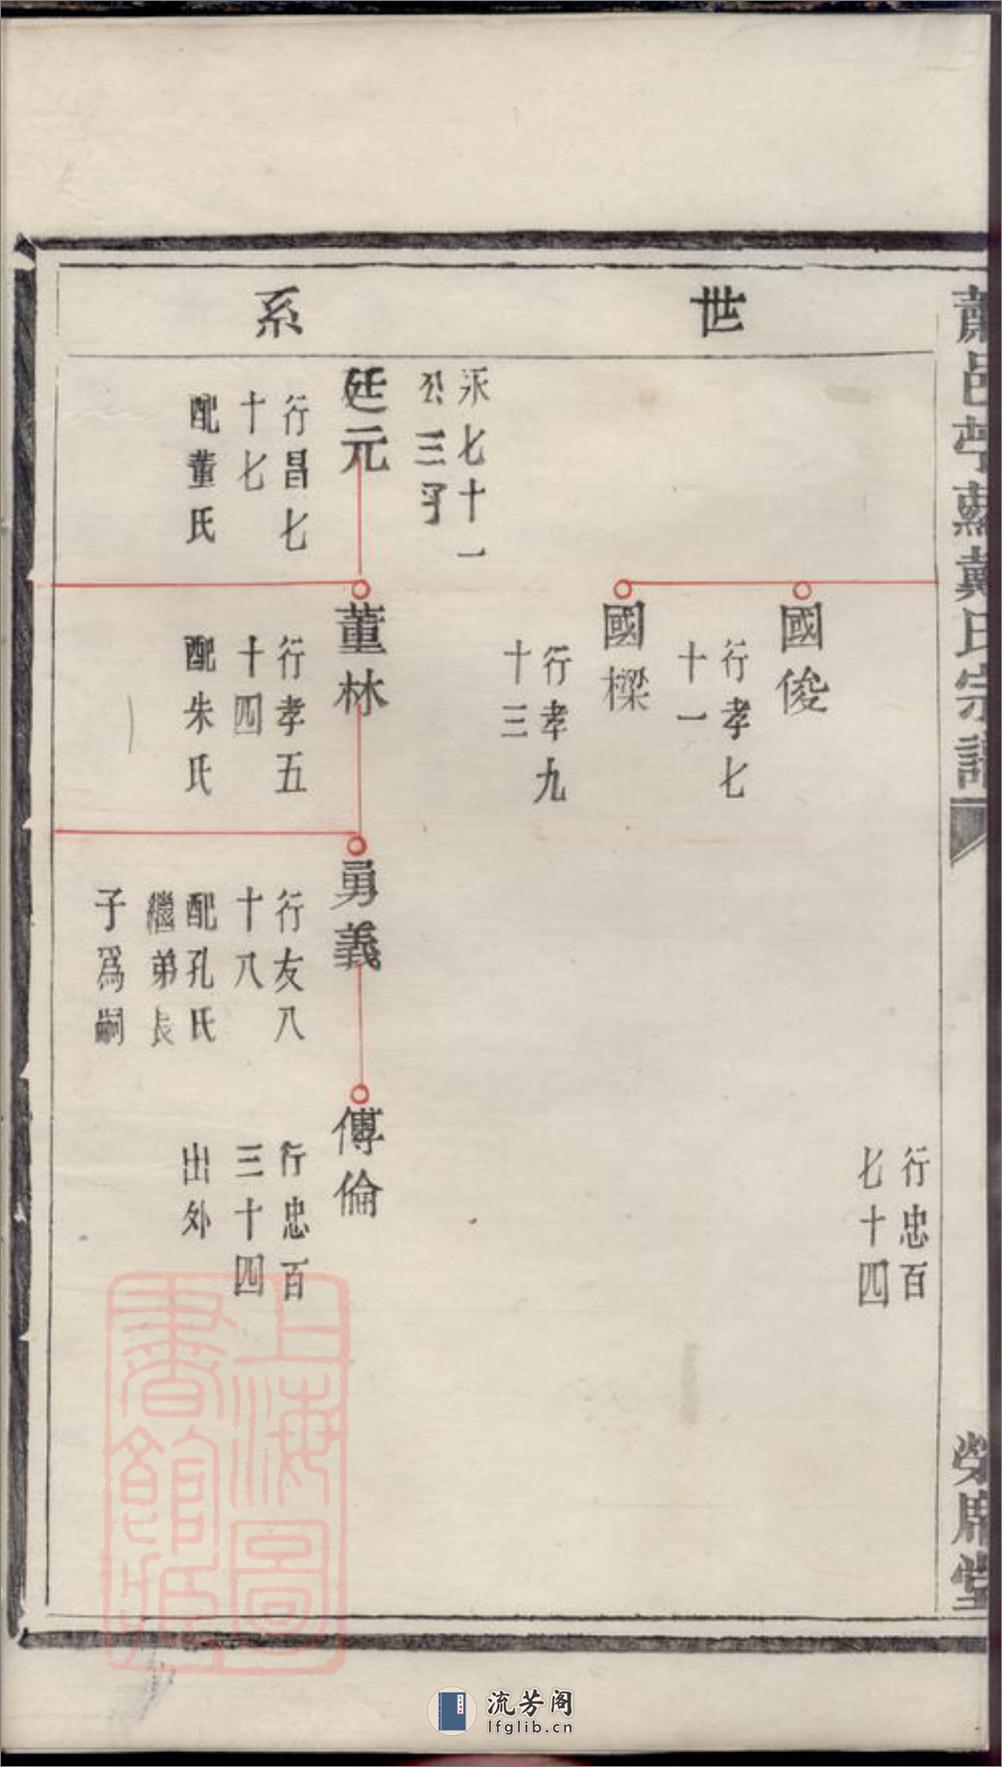 蕭邑
戴氏宗譜
榮席堂
世系
行忠百
七十四
國俊
行孝七
十一
國樑
行孝九
十三
永七十一
公三子
廷元
行昌七
十七
配董氏
董林
行孝五
十四
配朱氏
勇義
行友八
十八
配孔氏
繼弟長
子爲嗣
傳倫
行忠百
三十四
出外
上海圖
書館藏
流芳阁
lfglib.cn